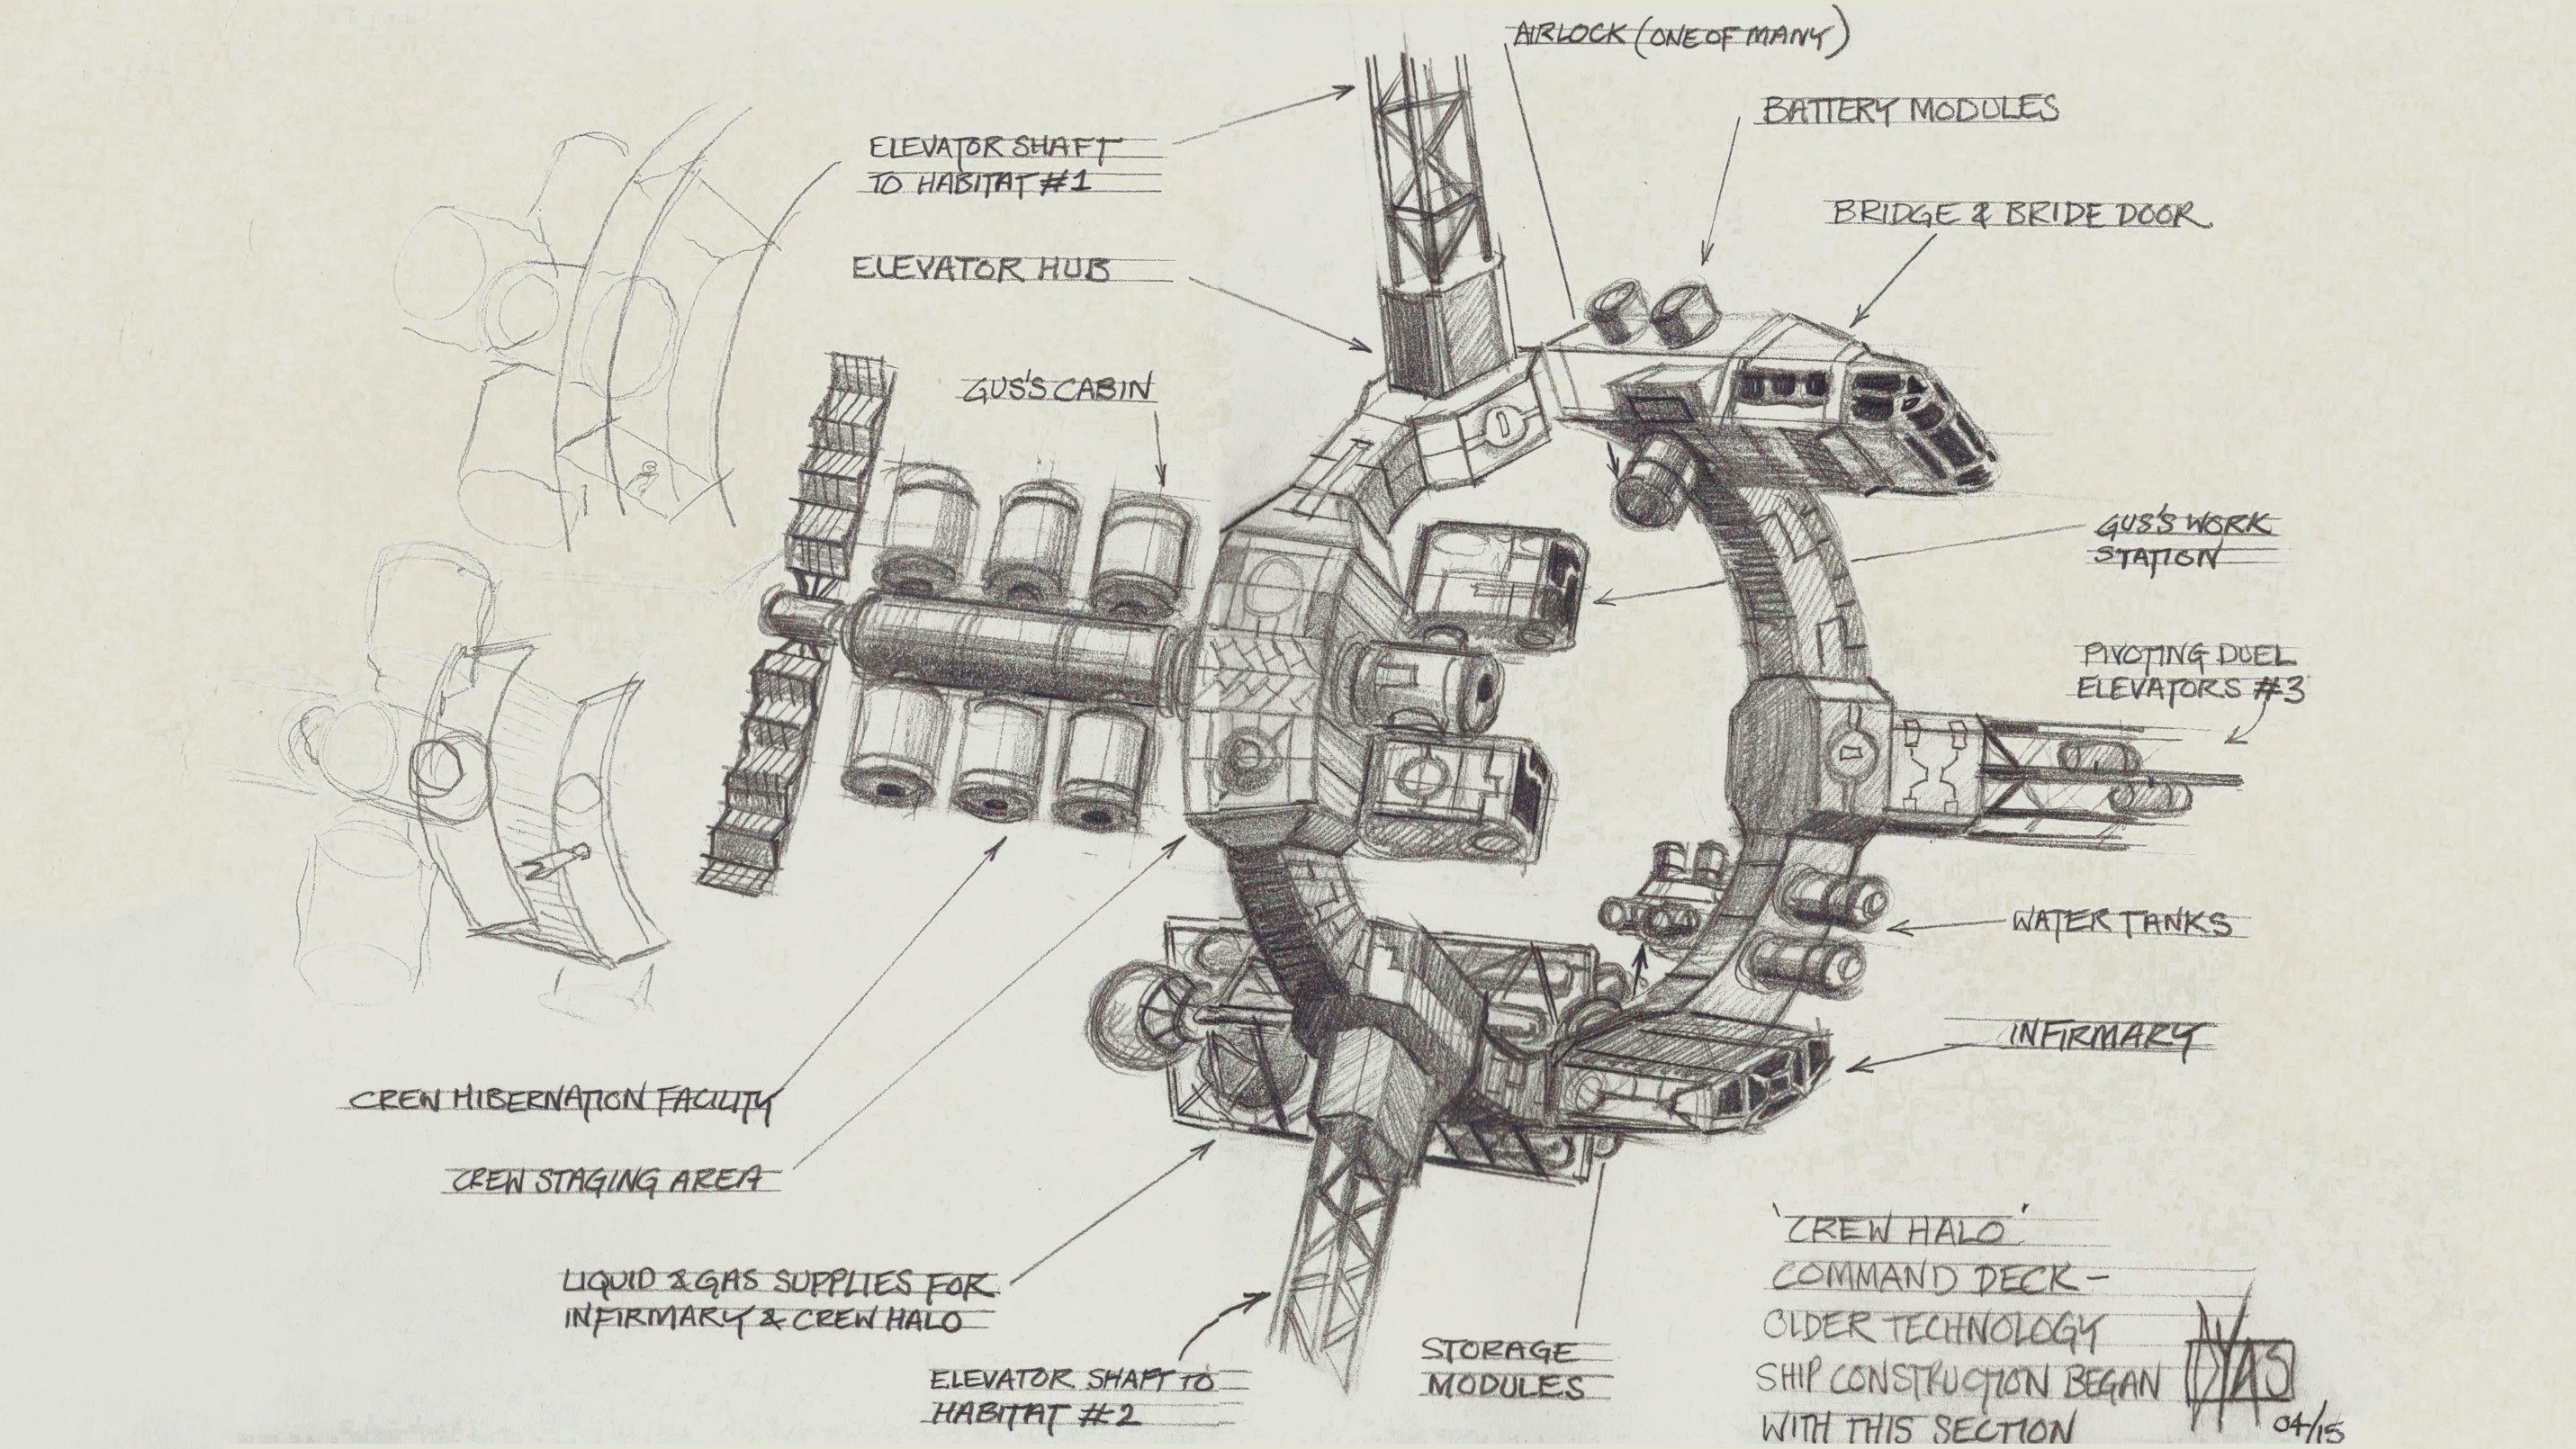 AIRLOCK (ONE OF MANY)
BATTERY MODULES
ELEVATOR SHAFT
TO HABITAT #1
BRIDGE & BRIDE DOOR
ELEVATOR HUB
GUS'S CABIN
GUS'S WORK
STATION
PIVOTING DUEL
ELEVATORS #3
WATER TANKS
INFIRMARY
CREW HIBERNATION FACILITY
CREW STAGING AREA
LIQUID & GAS SUPPLIES FOR
INFIRMARY & CREW HALO
ELEVATOR SHAFT TO
HABITAT #2
STORAGE
MODULES
'CREW HALO'
COMMAND DECK -
OLDER TECHNOLOGY
SHIP CONSTRUCTION BEGAN
WITH THIS SECTION
04/15